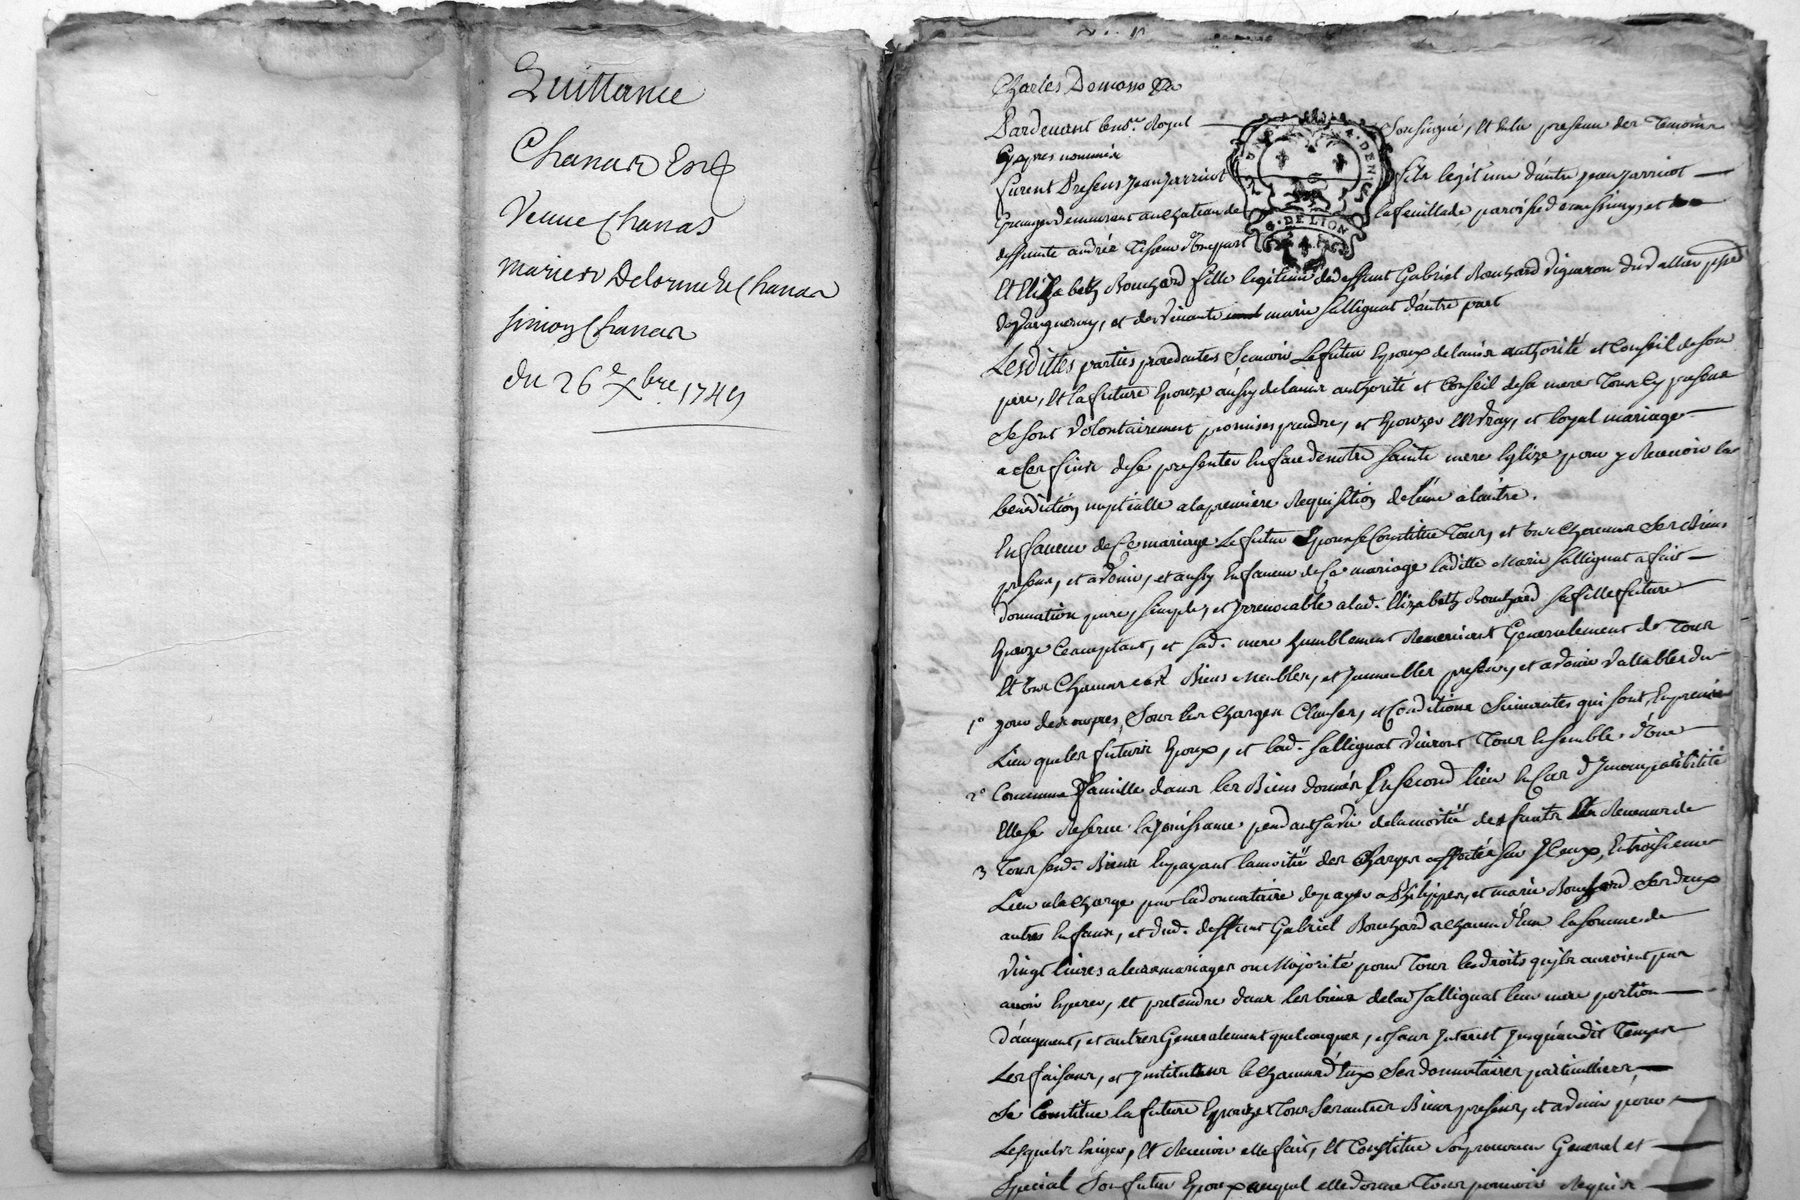 Quittance
Chanas
Veuve Chanas
mariet Delorme et Chanas
Simon Chanas
du 26e Xbre 1749
Charles Demasso
Pardevant le nore. Royal sousigné, et en la presence des temoins
cy apres nommés
furent Presens Jean Jarricot fils legitime d'autre jean jarricot
Granger demeurant au chateau de la feuillade paroisse d'
deffunte andrée d'une part
DEN
G. DE LION
Et Elizabeth Bouchard fille legitime de deffunt Gabriel Bouchard vigneron
et de vivante marie Sallignat d'autre part
Lesdittes parties procedantes scavoir Le futur Epoux de lavis authorité et Conseil de son
pere, Et la future Epouze aussy de lavis authorité et Conseil de sa mere tous cy presens
se sont volontairement promis prendre, et Epouzer en vray, et loyal mariage
a ces fins de se presenter en face de notre sainte mere Eglize pour y Recevoir la
benediction nuptialle a la premiere Requisition de l'une a l'autre.
En faveur de ce mariage Le futur Epoux se Constitue Tous, et uns chacuns ses Biens
presens, et advenir, et aussy En faveur de ce mariage laditte Marie Sallignat a fait
donnation pure, simple, et Irrevocable a lad. Elizabeth Bouchard sa fille future
Epouze acceptant, et sad. mere humblement Remerciant Generalement de Tous
Et uns Chacuns Biens Meubles, et Immeubles presens, et advenir vallables du
1o jour de son apres, Sous les charges Clauses, et Conditions Suivantes qui sont, En premier
Lieu que les futurs Epoux, et lad. Sallignat vivront Tous Ensemble d'une
2o Commune famille dans les Biens donnés En second lieu En Cas d'Incompatibilité
Elle se Reserve la jouissance pendant sa vie de la moitié des fruits Revenus de
3 Tous sesd. Biens En payant la moitié des charges affectées sur Iceux, En troisieme
Lieu a la charge par la donnataire de payer a Philippes, et marie Bouchard ses deux
autres Enfans, et dud. deffunt Gabriel Bouchard a chacun d'Eux la somme de
Vingt livres a leurs mariages ou Majorité pour Tous les droits qu'ils auroient pu
avoir Esperer, et pretendre dans les biens de lad Sallignat leur mere portion
d'augment, et autres Generalement quelconques, et sans Interest Jusqu'audit Temps
Les faisant, et Instituant le chacun d'Eux Ses donnataires particulliers,
Se Constitue la future Epouze Tous Ses autres Biens presens, et advenir pour
Lesquels Exiger, Et Recevoir elle fait, Et Constitue son procureur General et
Special Son futur Epoux auquel elle donne Tous pouvoirs Requis